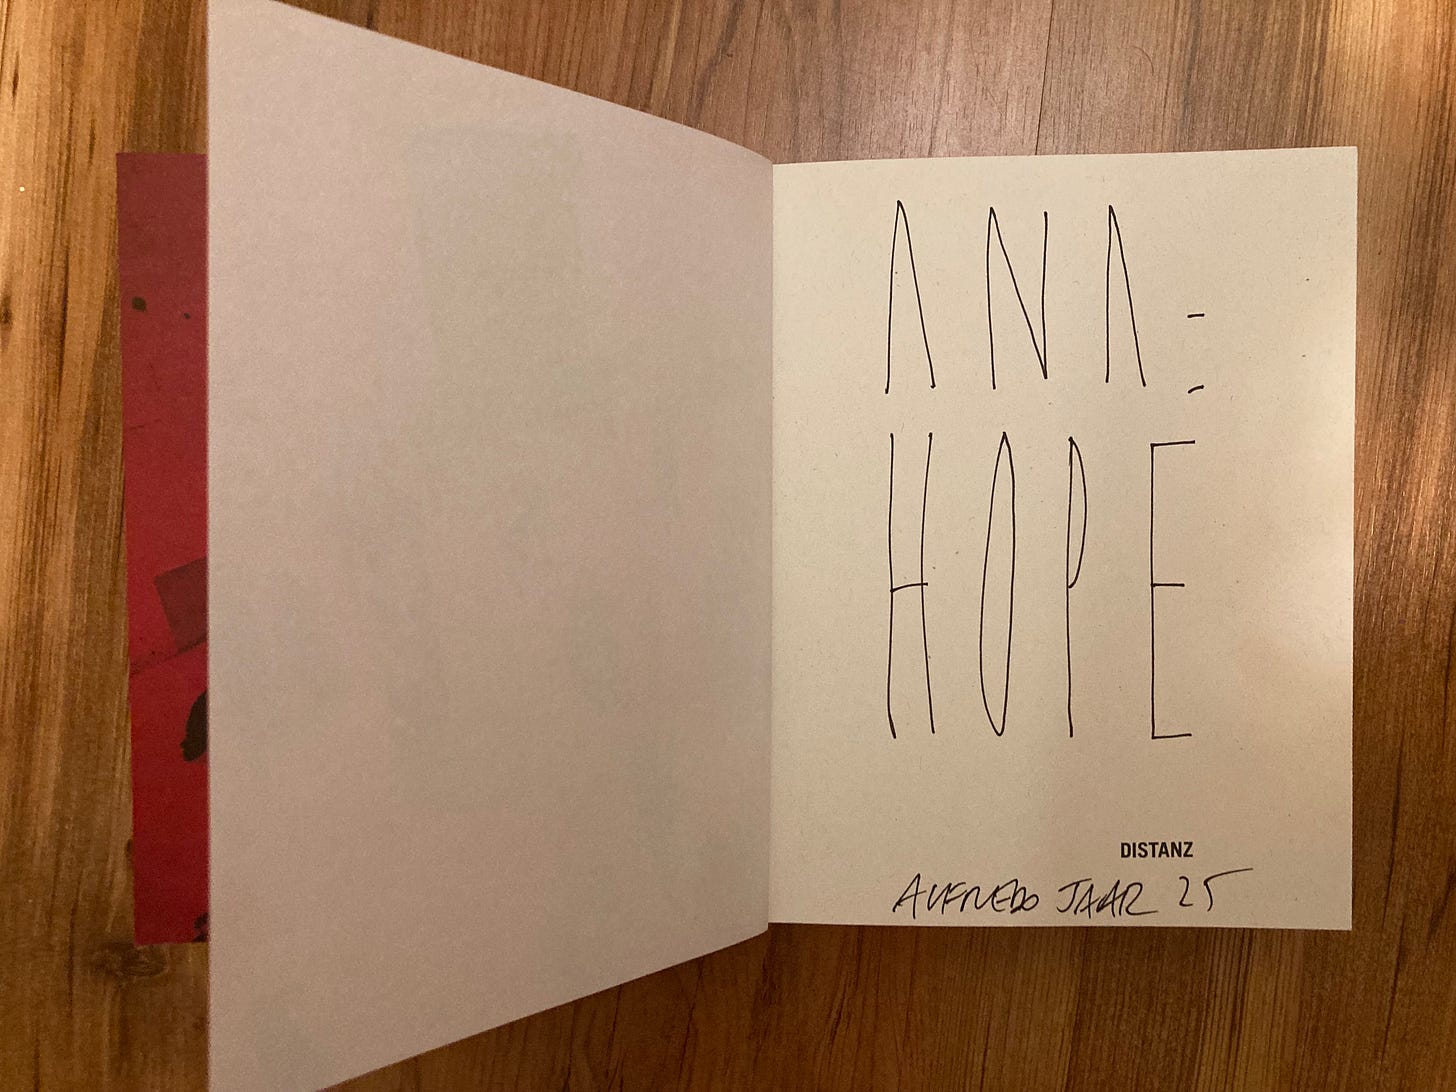 ANA:
HOPE
DISTANZ
ALFREDO JAAR 25